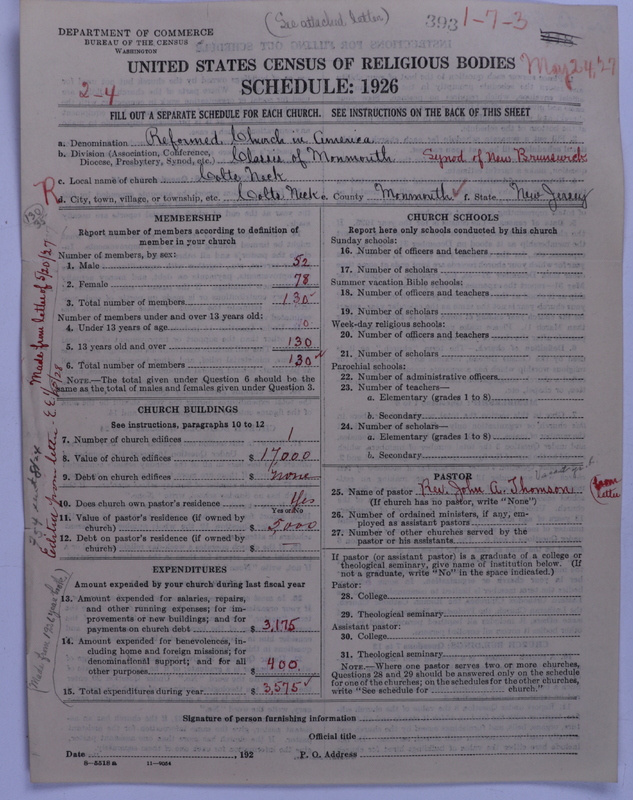 (See attached letter)
393
1-7-3
DEPARTMENT OF COMMERCE
BUREAU OF THE CENSUS
WASHINGTON
UNITED STATES CENSUS OF RELIGIOUS BODIES
May 24, 27
SCHEDULE: 1926
2-4
FILL OUT A SEPARATE SCHEDULE FOR EACH CHURCH. SEE INSTRUCTIONS ON THE BACK OF THIS SHEET
a. Denomination Reformed Church in America
b. Division (Association, Conference, Diocese, Presbytery, Synod, etc.) Classis of Monmouth Synod of New Brunswick
c. Local name of church Colts Neck
R
d. City, town, village, or township, etc. Colts Neck e. County Monmouth ✓ f. State New Jersey
MEMBERSHIP
Report number of members according to definition of
member in your church
Number of members, by sex:
1. Male 52
2. Female 78
3. Total number of members 130
Number of members under and over 13 years old:
4. Under 13 years of age 0
5. 13 years old and over 130
6. Total number of members 130 ✓
NOTE.—The total given under Question 6 should be the
same as the total of males and females given under Question 3.
CHURCH BUILDINGS
See instructions, paragraphs 10 to 12
7. Number of church edifices 1
8. Value of church edifices $ 17,000
9. Debt on church edifices $ none
10. Does church own pastor's residence? Yes
Yes or No
11. Value of pastor's residence (if owned by
church) $ 5,000
12. Debt on pastor's residence (if owned by
church) $ —
EXPENDITURES
Amount expended by your church during last fiscal year
13. Amount expended for salaries, repairs,
and other running expenses; for im-
provements or new buildings; and for
payments on church debt $ 3,175
14. Amount expended for benevolences, in-
cluding home and foreign missions; for
denominational support; and for all
other purposes $ 400
15. Total expenditures during year $ 3,575 ✓
CHURCH SCHOOLS
Report here only schools conducted by this church
Sunday schools:
16. Number of officers and teachers
17. Number of scholars
Summer vacation Bible schools:
18. Number of officers and teachers
19. Number of scholars
Week-day religious schools:
20. Number of officers and teachers
21. Number of scholars
Parochial schools:
22. Number of administrative officers
23. Number of teachers—
a. Elementary (grades 1 to 8)
b. Secondary
24. Number of scholars—
a. Elementary (grades 1 to 8)
b. Secondary
PASTOR
25. Name of pastor Rev. John A. Thomson
(from letter)
(If church has no pastor, write "None")
26. Number of ordained ministers, if any, em-
ployed as assistant pastors
27. Number of other churches served by the
pastor or his assistants
If pastor (or assistant pastor) is a graduate of a college or
theological seminary, give name of institution below. (If
not a graduate, write "No" in the space indicated.)
Pastor:
28. College
29. Theological seminary
Assistant pastor:
30. College
31. Theological seminary
NOTE.—Where one pastor serves two or more churches,
Questions 28 and 29 should be answered only on the schedule
for one of the churches; on the schedules for the other churches,
write "See schedule for church."
Signature of person furnishing information
Official title
Date , 192 P. O. Address
8—5518 a 11—9054
Made from letter of 5/20/27
Edited from letter - E.E.
(Made from 1926 year book)